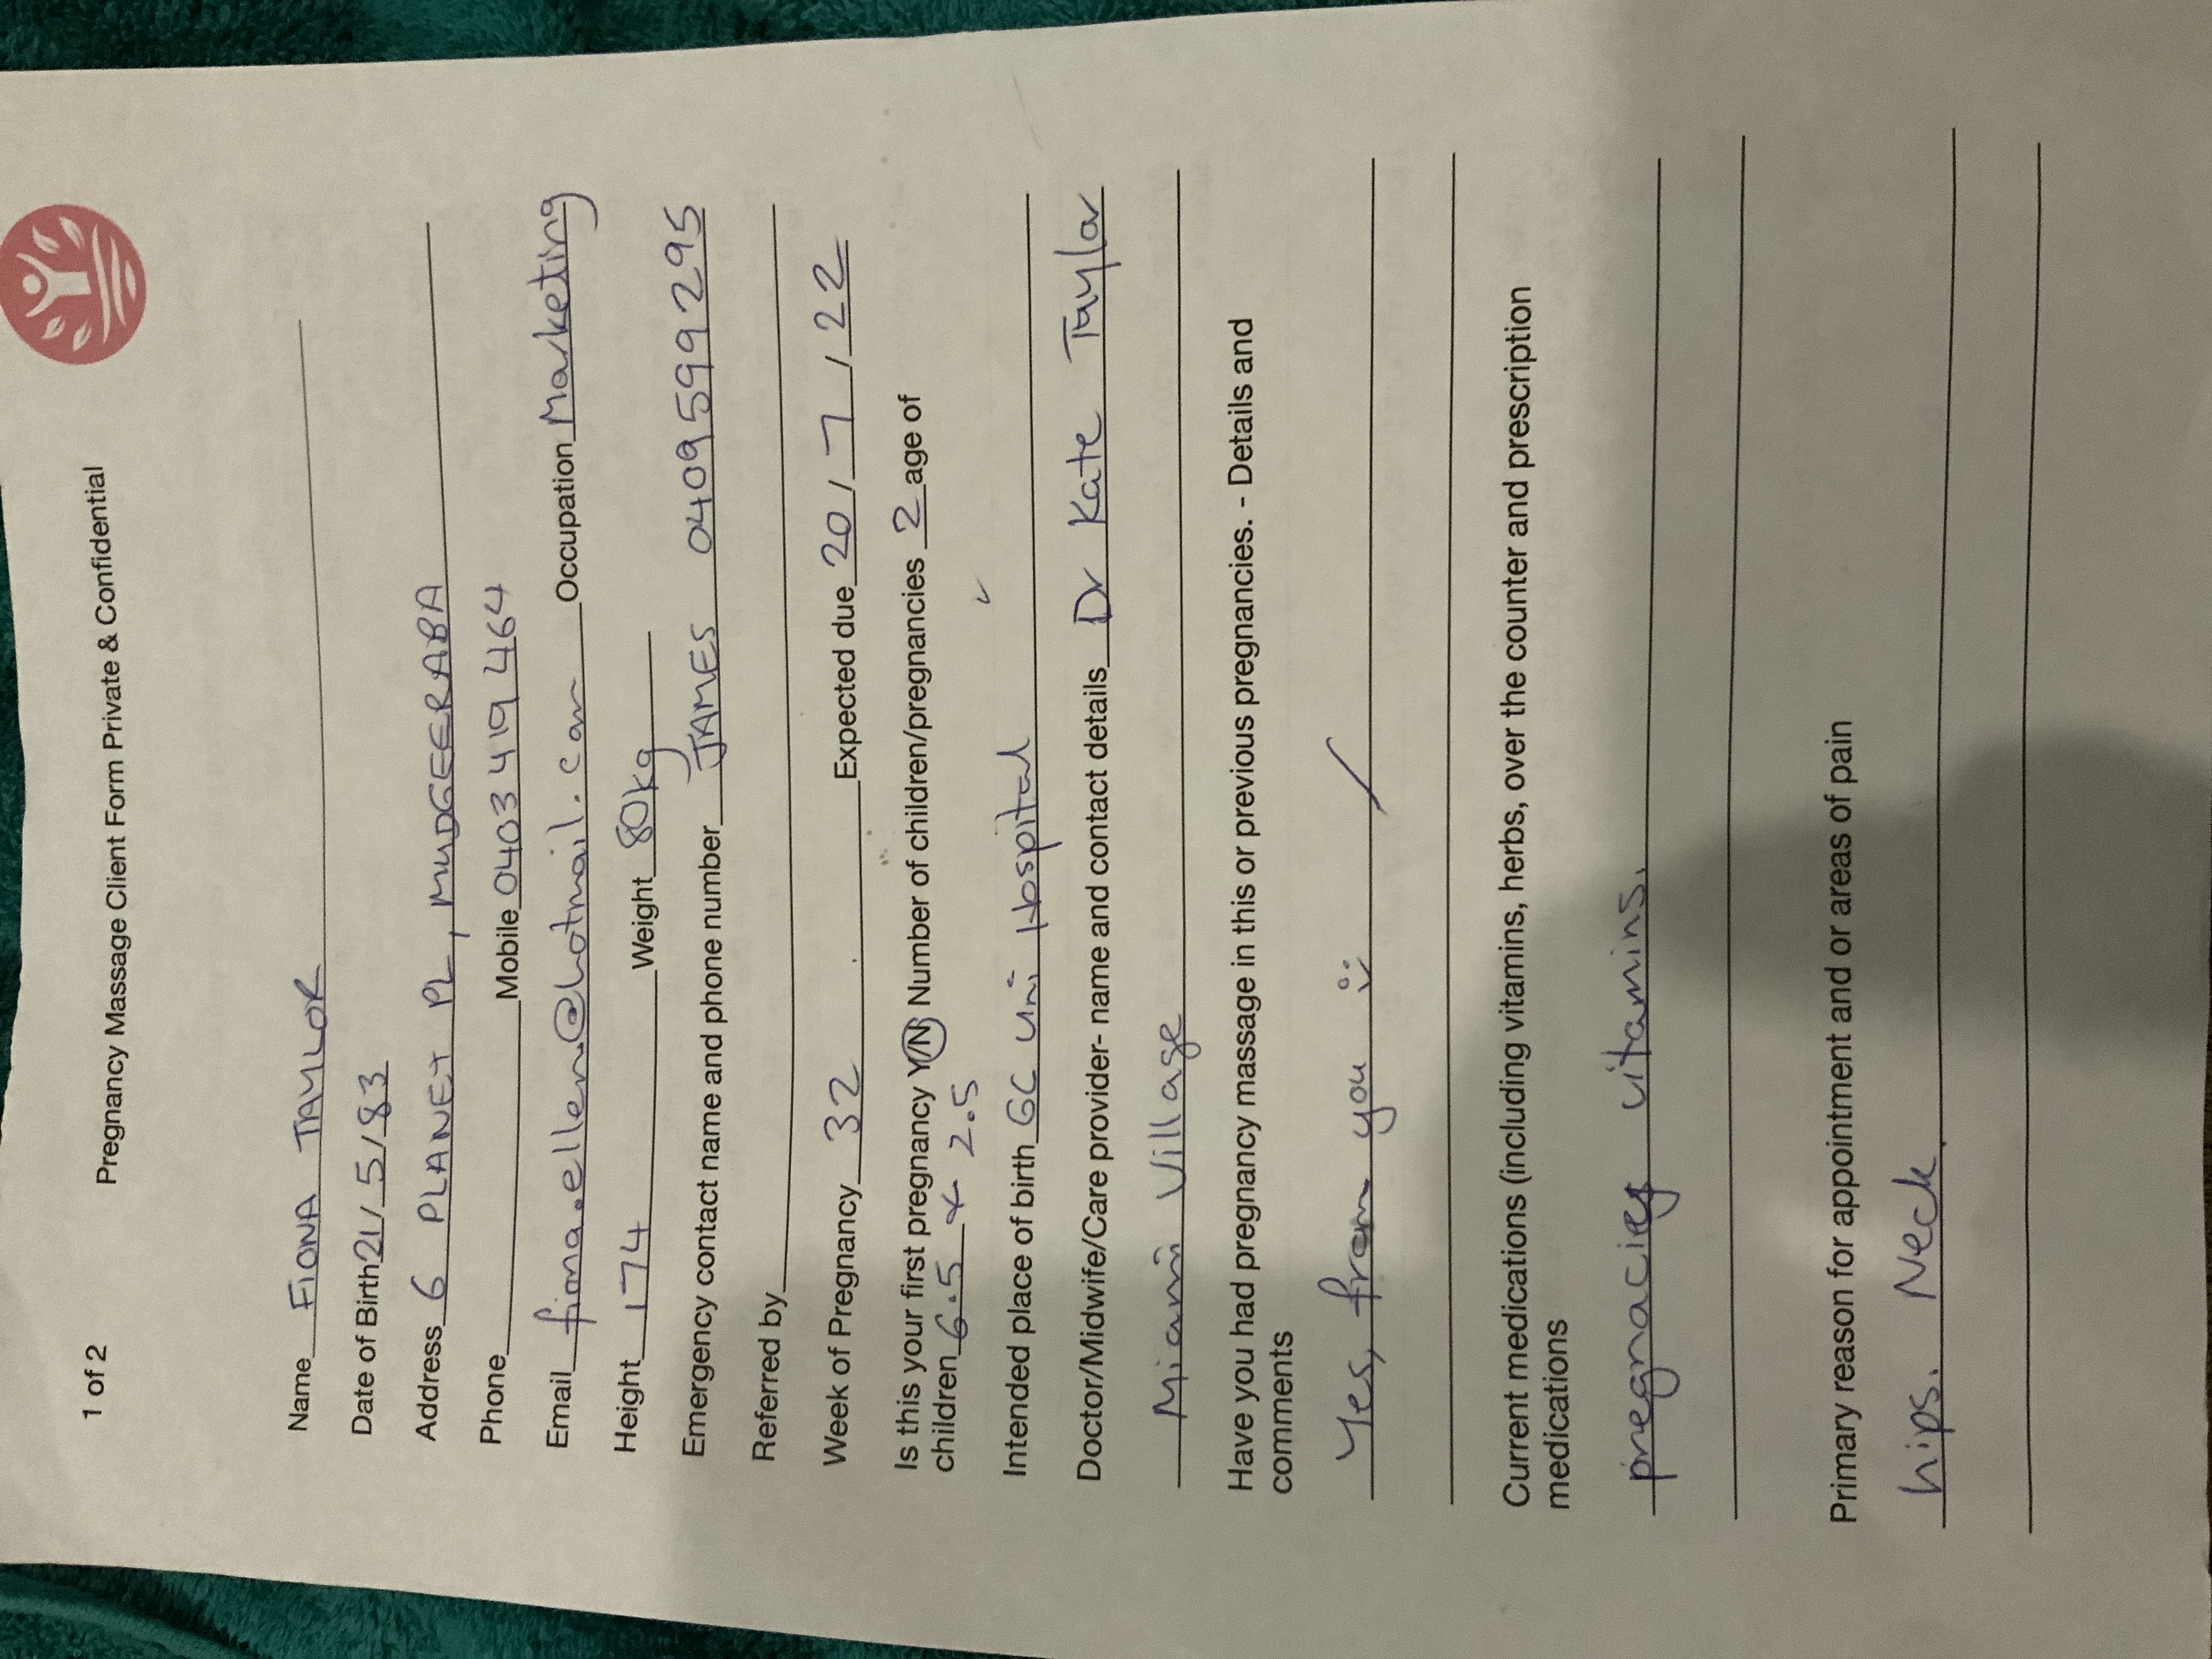 1 of 2 Pregnancy Massage Client Form Private & Confidential
Name FIONA TAYLOR
Date of Birth 21/5/83
Address 6 PLANET PL, MUDGEERABA
Phone Mobile 0403 419 464
Email fiona.ellen@hotmail.com Occupation Marketing
Height 174 Weight 80kg
Emergency contact name and phone number JAMES 0409599295
Referred by
Week of Pregnancy 32 Expected due 20/7/22
Is this your first pregnancy Y/N Number of children/pregnancies 2 age of
children 6.5 & 2.5
Intended place of birth GC Uni Hospital
Doctor/Midwife/Care provider- name and contact details Dr Kate Taylor
Miami Village
Have you had pregnancy massage in this or previous pregnancies. - Details and
comments
Yes, from you :)
Current medications (including vitamins, herbs, over the counter and prescription
medications
pregnacief vitamins.
Primary reason for appointment and or areas of pain
hips. Neck.